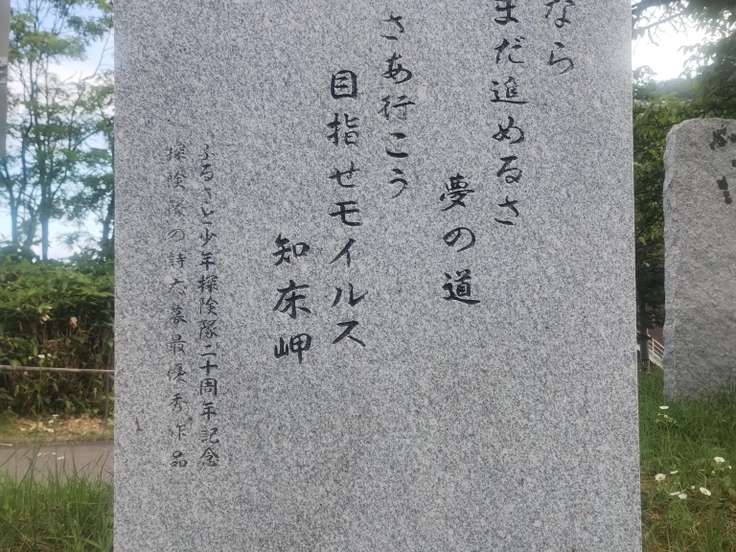 なら
まだ進めるさ
夢の道
さあ行こう
目指せモイルス
知床岬
ふるさと少年探険隊二十周年記念
探険隊の詩応募最優秀作品